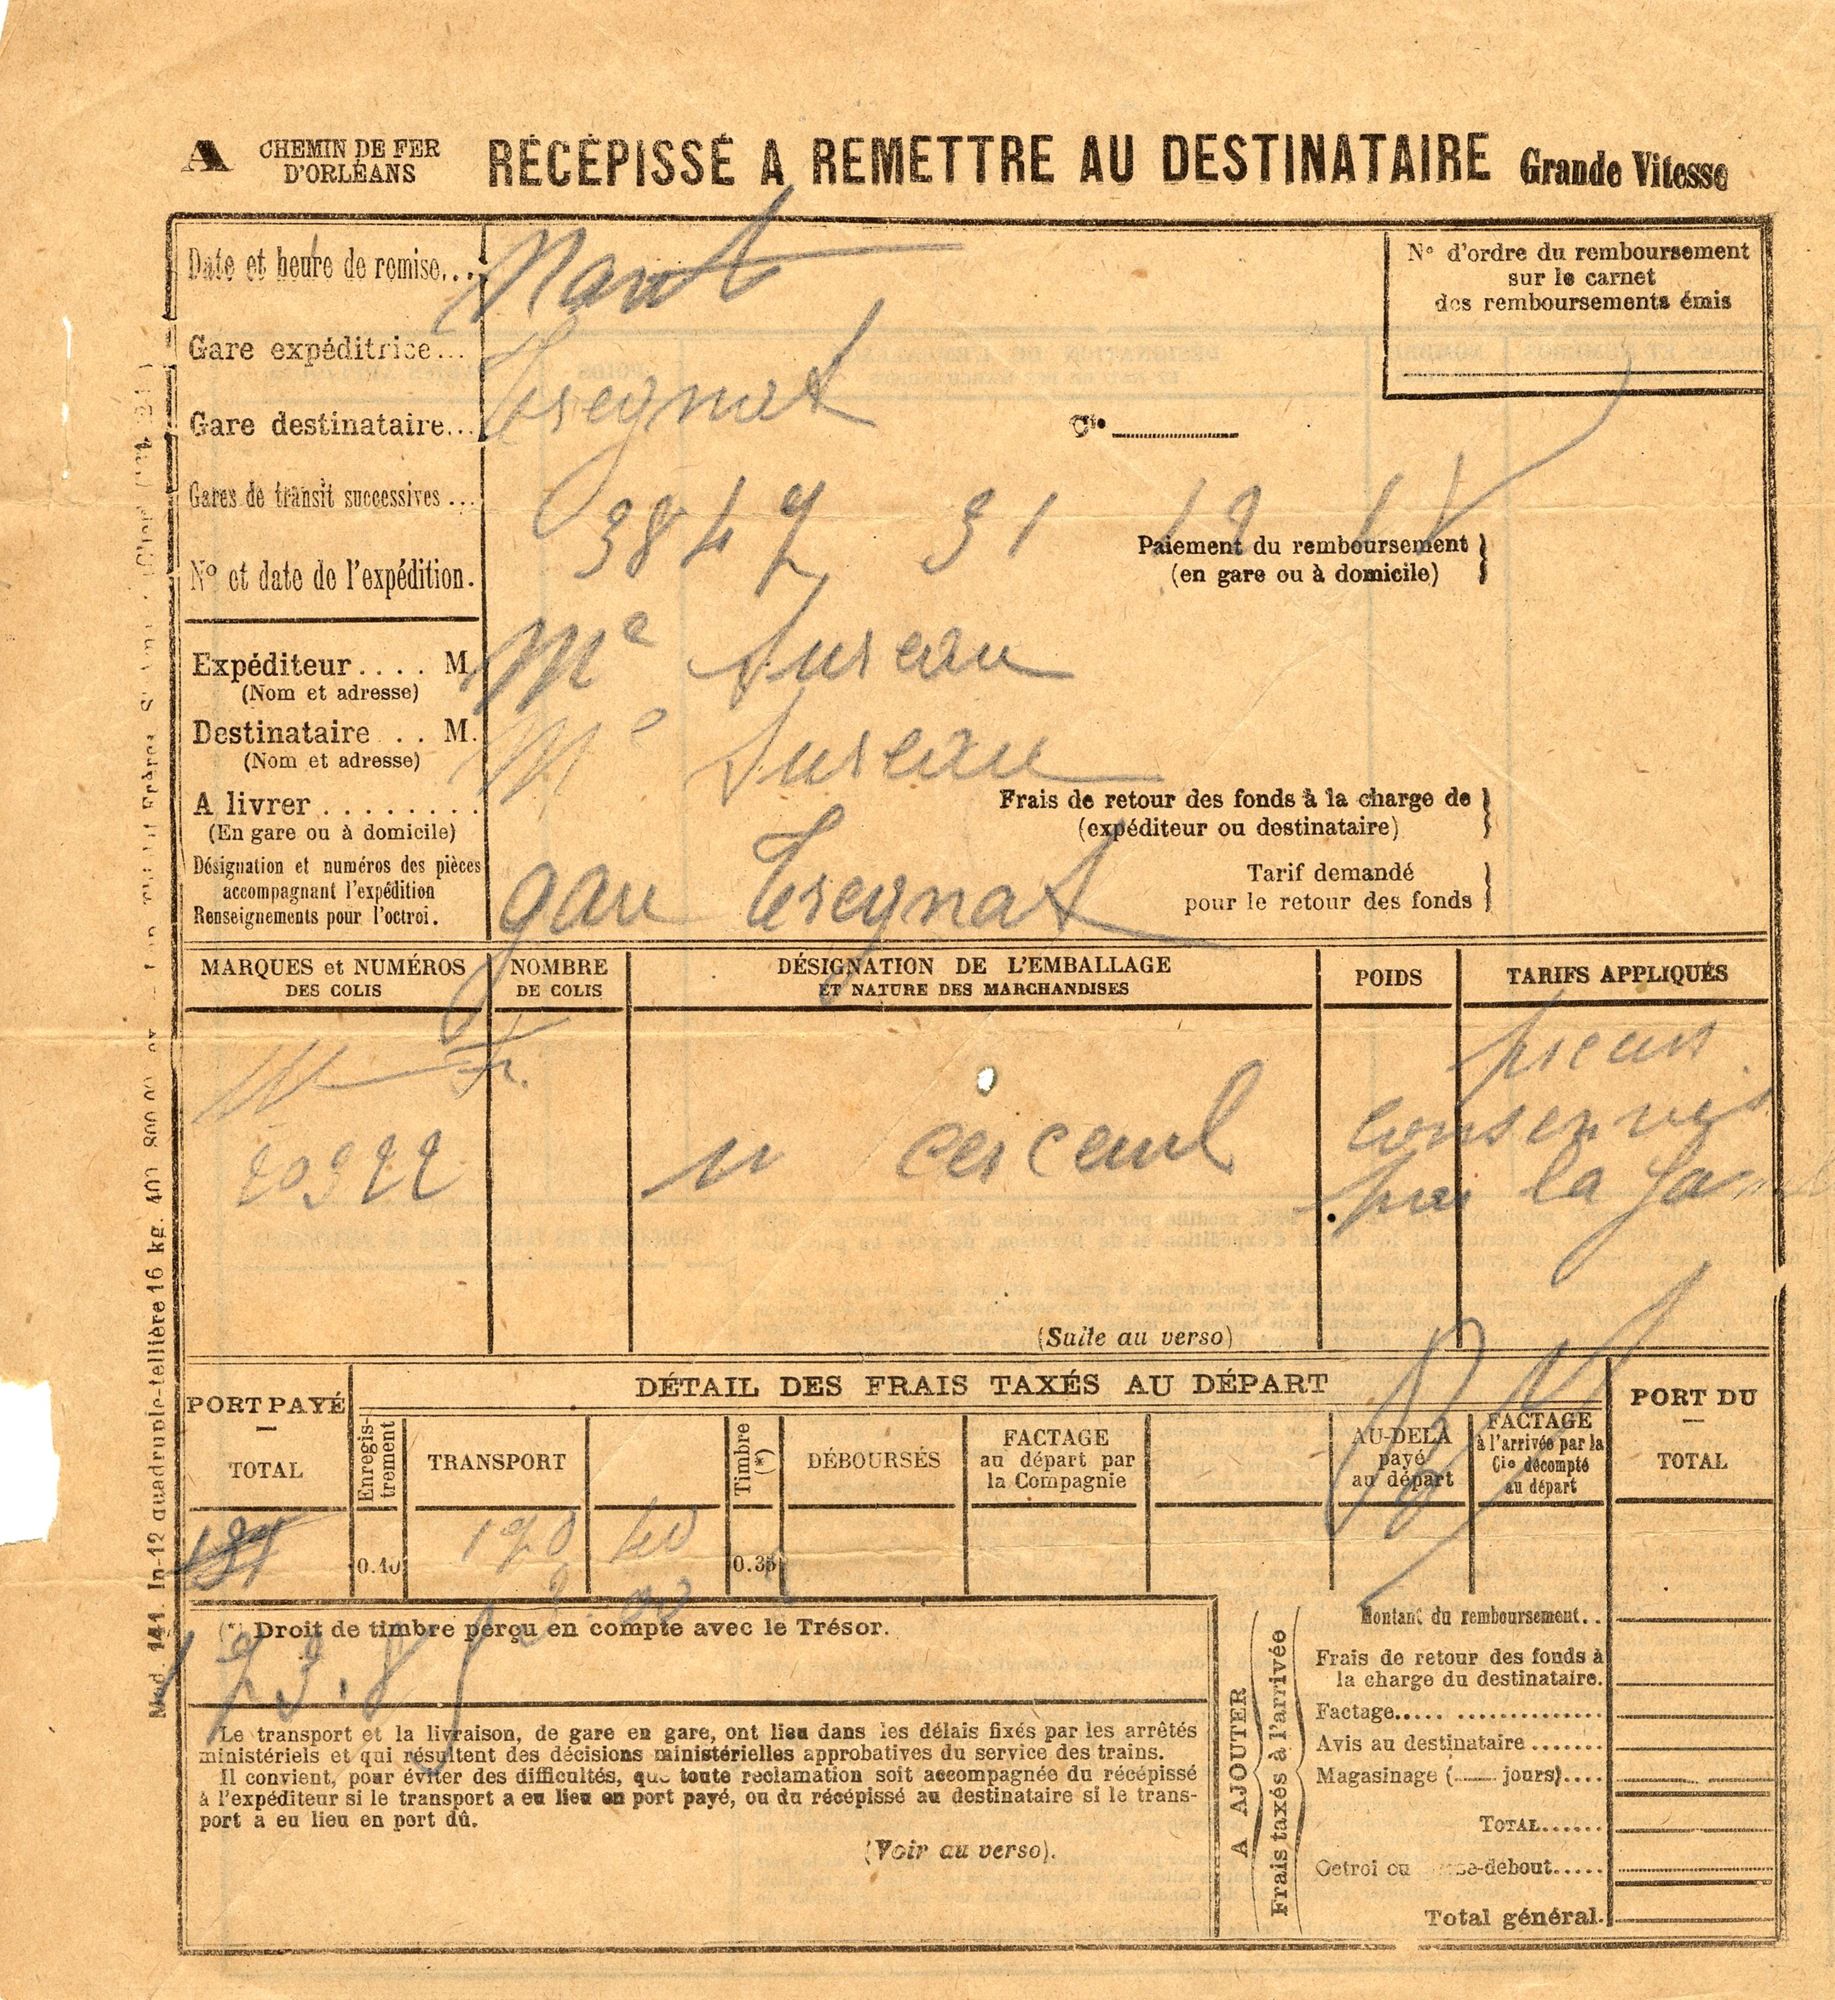 A
CHEMIN DE FER
D'ORLÉANS
RÉCÉPISSÉ A REMETTRE AU DESTINATAIRE Grande Vitesse
Date et heure de remise...
N° d'ordre du remboursement
sur le carnet
des remboursements émis
Gare expéditrice...
Gare destinataire... Treignat
Cie
Gares de transit successives...
N° et date de l'expédition. 3847 31 12
Paiement du remboursement
(en gare ou à domicile)
Expéditeur.... M. Me Dureau
(Nom et adresse)
Destinataire .. M. Me Dureau
(Nom et adresse)
A livrer........
(En gare ou à domicile)
Frais de retour des fonds à la charge de
(expéditeur ou destinataire)
gare Treignat
Désignation et numéros des pièces
accompagnant l'expédition
Renseignements pour l'octroi.
Tarif demandé
pour le retour des fonds
MARQUES et NUMÉROS
DES COLIS
NOMBRE
DE COLIS
DÉSIGNATION DE L'EMBALLAGE
ET NATURE DES MARCHANDISES
POIDS
TARIFS APPLIQUÉS
20322
un cerceuil
conserves
par la fam
(Suite au verso)
PORT PAYÉ
TOTAL
DÉTAIL DES FRAIS TAXÉS AU DÉPART
Enregis-
trement
TRANSPORT
Timbre
(*)
DÉBOURSÉS
FACTAGE
au départ par
la Compagnie
AU-DELA
payé
au départ
FACTAGE
à l'arrivée par la
Cie décompté
au départ
PORT DU
TOTAL
0.10
170 40
0.35
173.85
(*) Droit de timbre perçu en compte avec le Trésor.
Le transport et la livraison, de gare en gare, ont lieu dans les délais fixés par les arrêtés
ministériels et qui résultent des décisions ministérielles approbatives du service des trains.
Il convient, pour éviter des difficultés, que toute reclamation soit accompagnée du récépissé
à l'expéditeur si le transport a eu lieu en port payé, ou du récépissé au destinataire si le trans-
port a eu lieu en port dû.
(Voir au verso).
A AJOUTER
Frais taxés à l'arrivée
Montant du remboursement..
Frais de retour des fonds à
la charge du destinataire.
Factage.....
Avis au destinataire.......
Magasinage (— jours)....
TOTAL......
Octroi ou -debout.....
Total général.
Mod. 141. In-12 quadruple-tellière 16 kg.